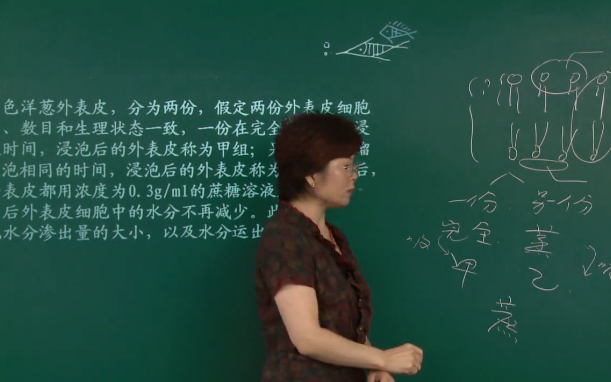 色洋葱外表皮，分为两份，假定两份外表皮细胞
、数目和生理状态一致，一份在完全 浸
时间，浸泡后的外表皮称为甲组；
泡相同的时间，浸泡后的外表皮称为 后，
表皮都用浓度为0.3g/ml的蔗糖溶液
后外表皮细胞中的水分不再减少。
水分渗出量的大小，以及水分运出
一份 另一份
完全 蒸
甲 乙
蒸